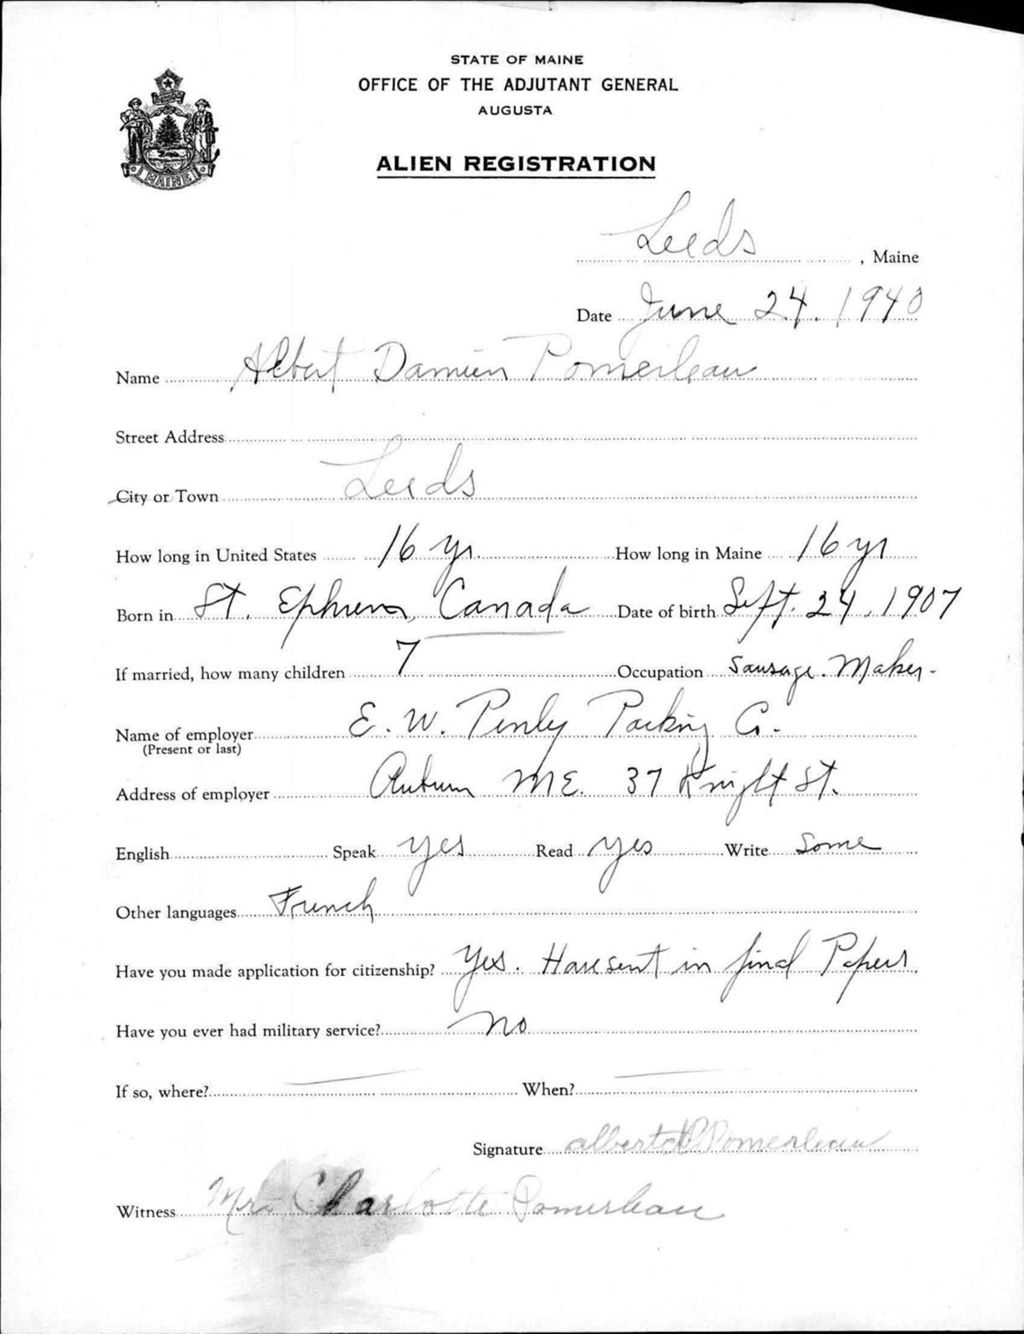 STATE OF MAINE
OFFICE OF THE ADJUTANT GENERAL
AUGUSTA
ALIEN REGISTRATION
MAINE
Leeds, Maine
Date June 24. 1940
Name Albert Damien Pomerleau
Street Address
City or Town Leeds
How long in United States 16 yr. How long in Maine 16 yr
Born in St. Ephrem, Canada Date of birth Sept. 24, 1907
If married, how many children 7 Occupation Sausage Maker
Name of employer E. W. Penly Packing Co.
(Present or last)
Address of employer Auburn ME. 37 Knight St.
English Speak yes Read yes Write Some
Other languages French
Have you made application for citizenship? Yes. Have sent in final Papers.
Have you ever had military service? No
If so, where? When?
Signature albert Pomerleau
Witness Mrs Charlotte Pomerleau